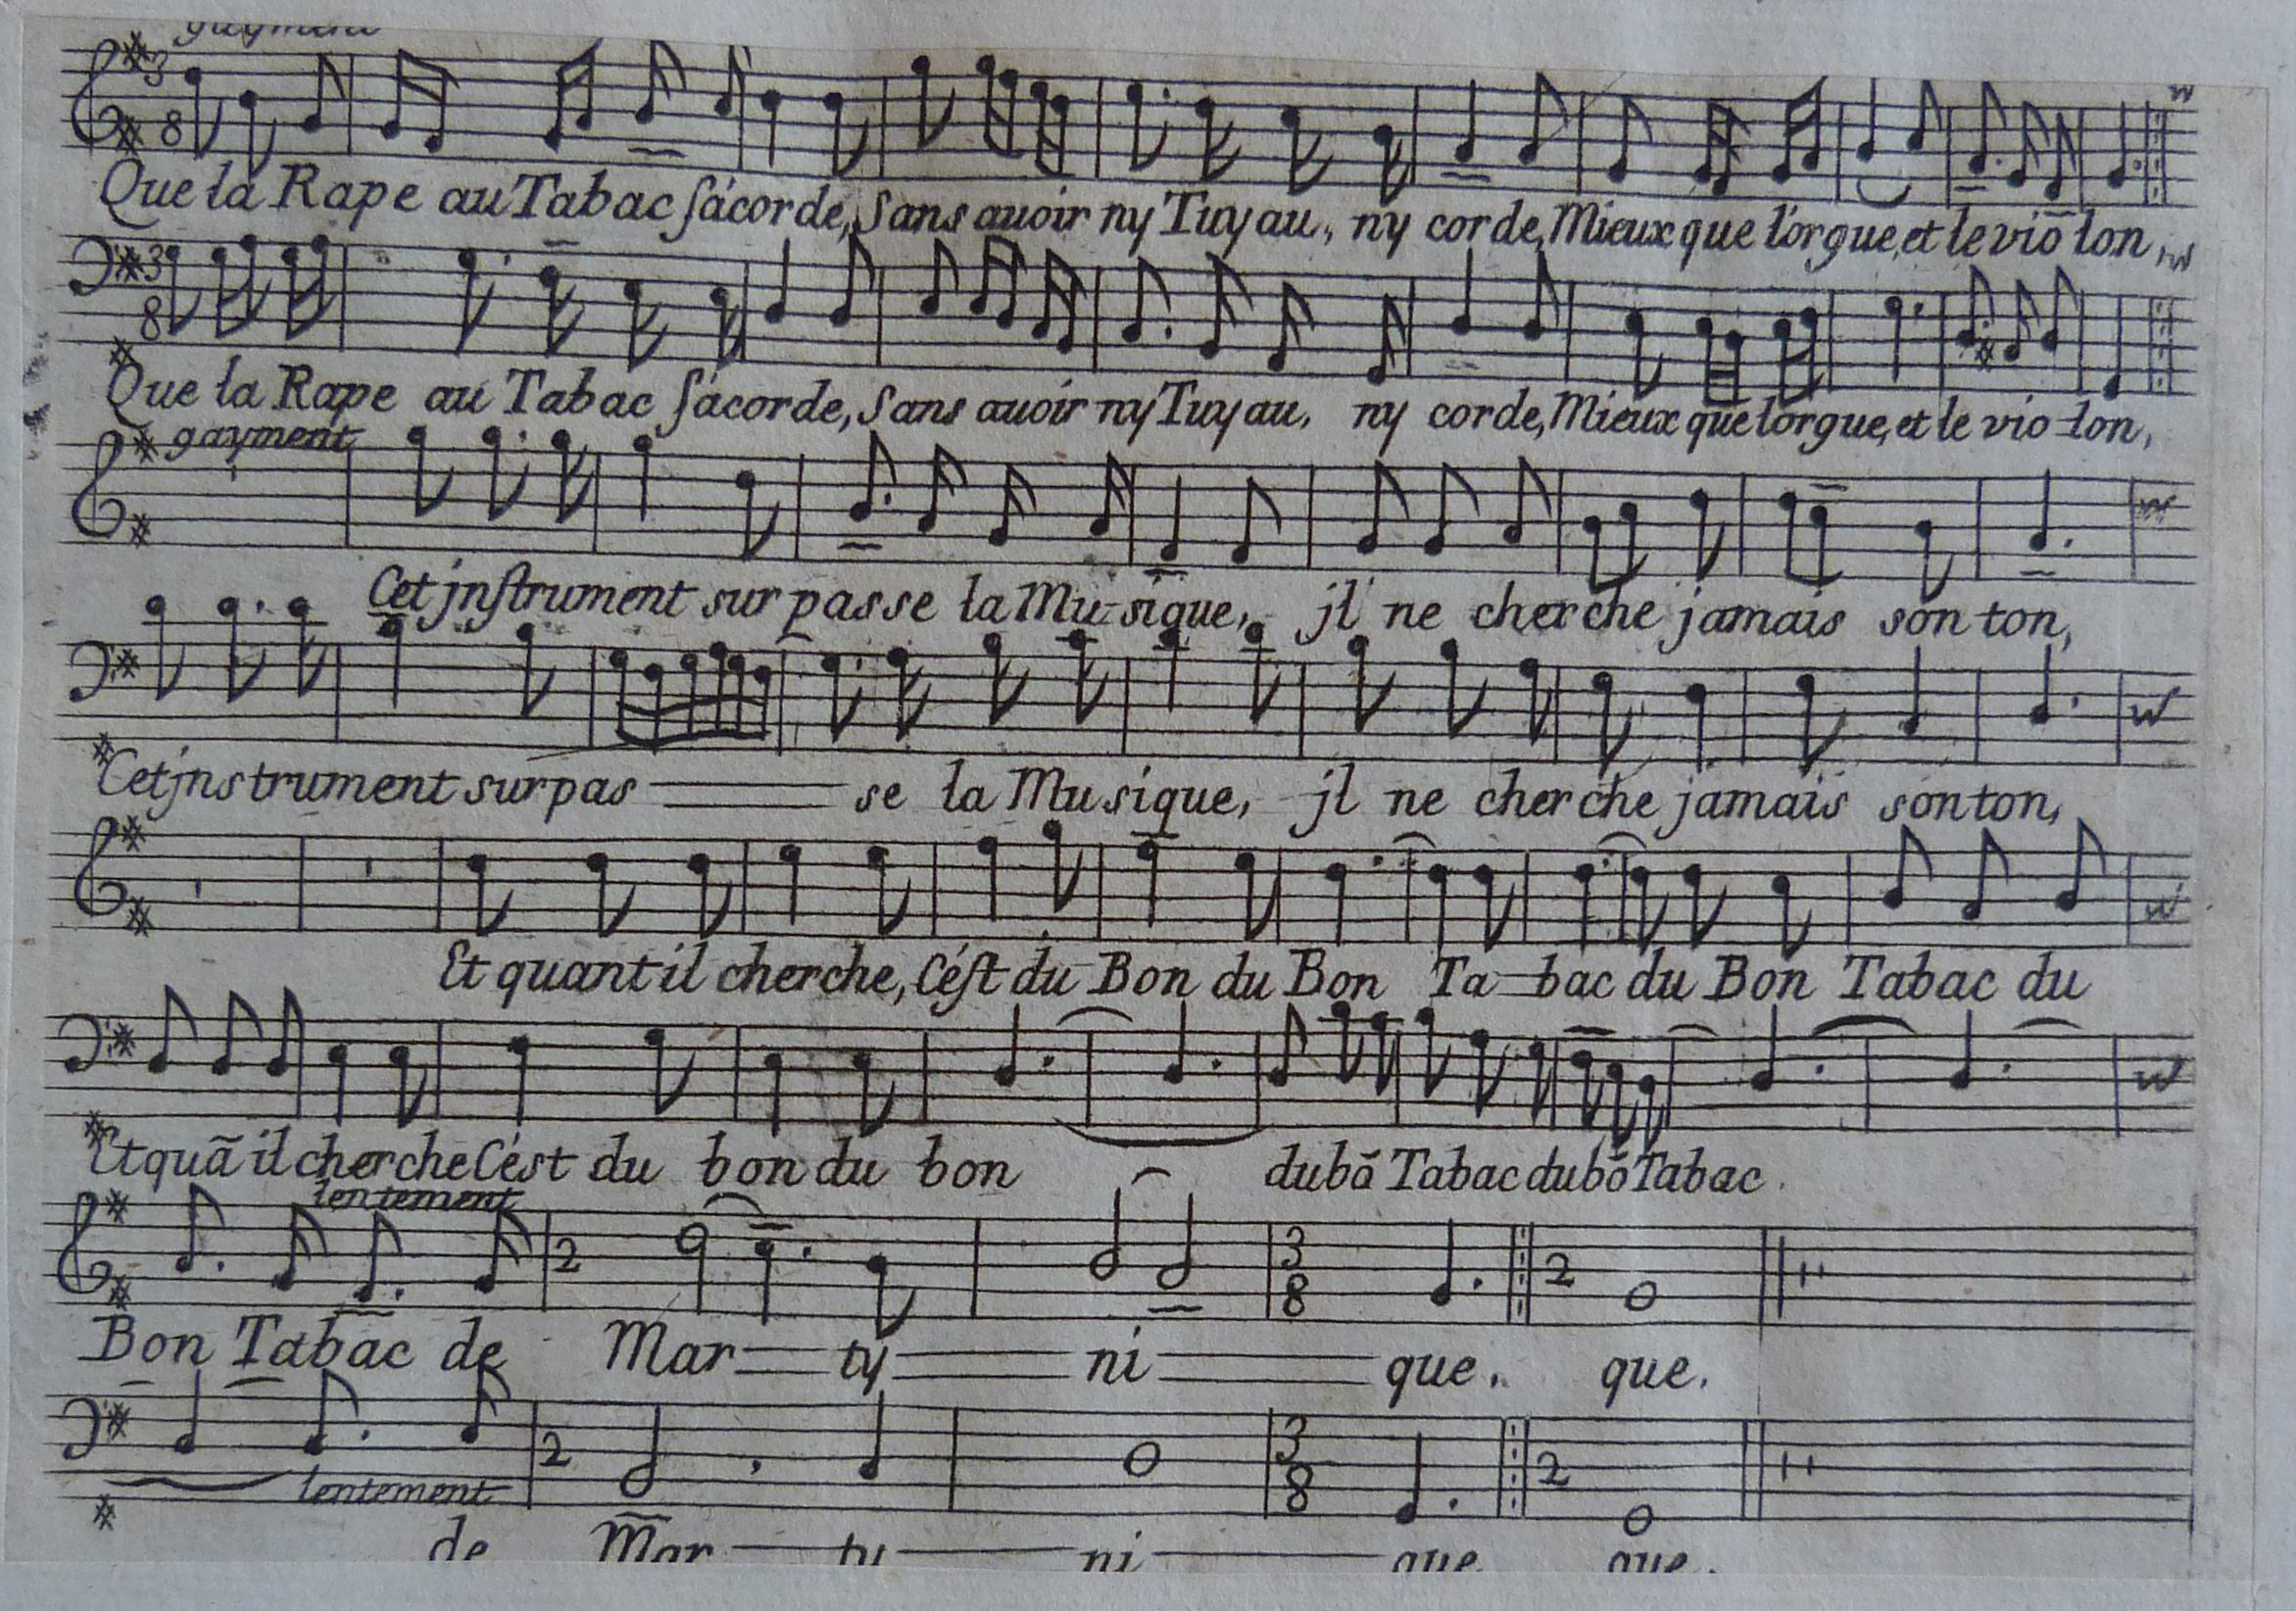 gayment
3
8
Que la Rape au Tabac s'acorde, Sans auoir ny Tuyau, ny corde, Mieux que l'orgue, et le violon,
3
8
Que la Rape au Tabac s'acorde, Sans auoir ny Tuyau, ny corde, Mieux que l'orgue, et le violon,
gayment
Cet jnstrument surpasse la Musique, jl ne cherche jamais son ton,
Cet jnstrument surpas se la Musique, jl ne cherche jamais son ton,
Et quant il cherche, C'est du Bon du Bon Ta-bac du Bon Tabac du
Et quã il cherche C'est du bon du bon du bõ Tabac du bõ Tabac
lentement
2 3 8 2
Bon Tabac de Mar ty ni que. que.
2 3 8 2
lentement
de Mar ty ni que que.